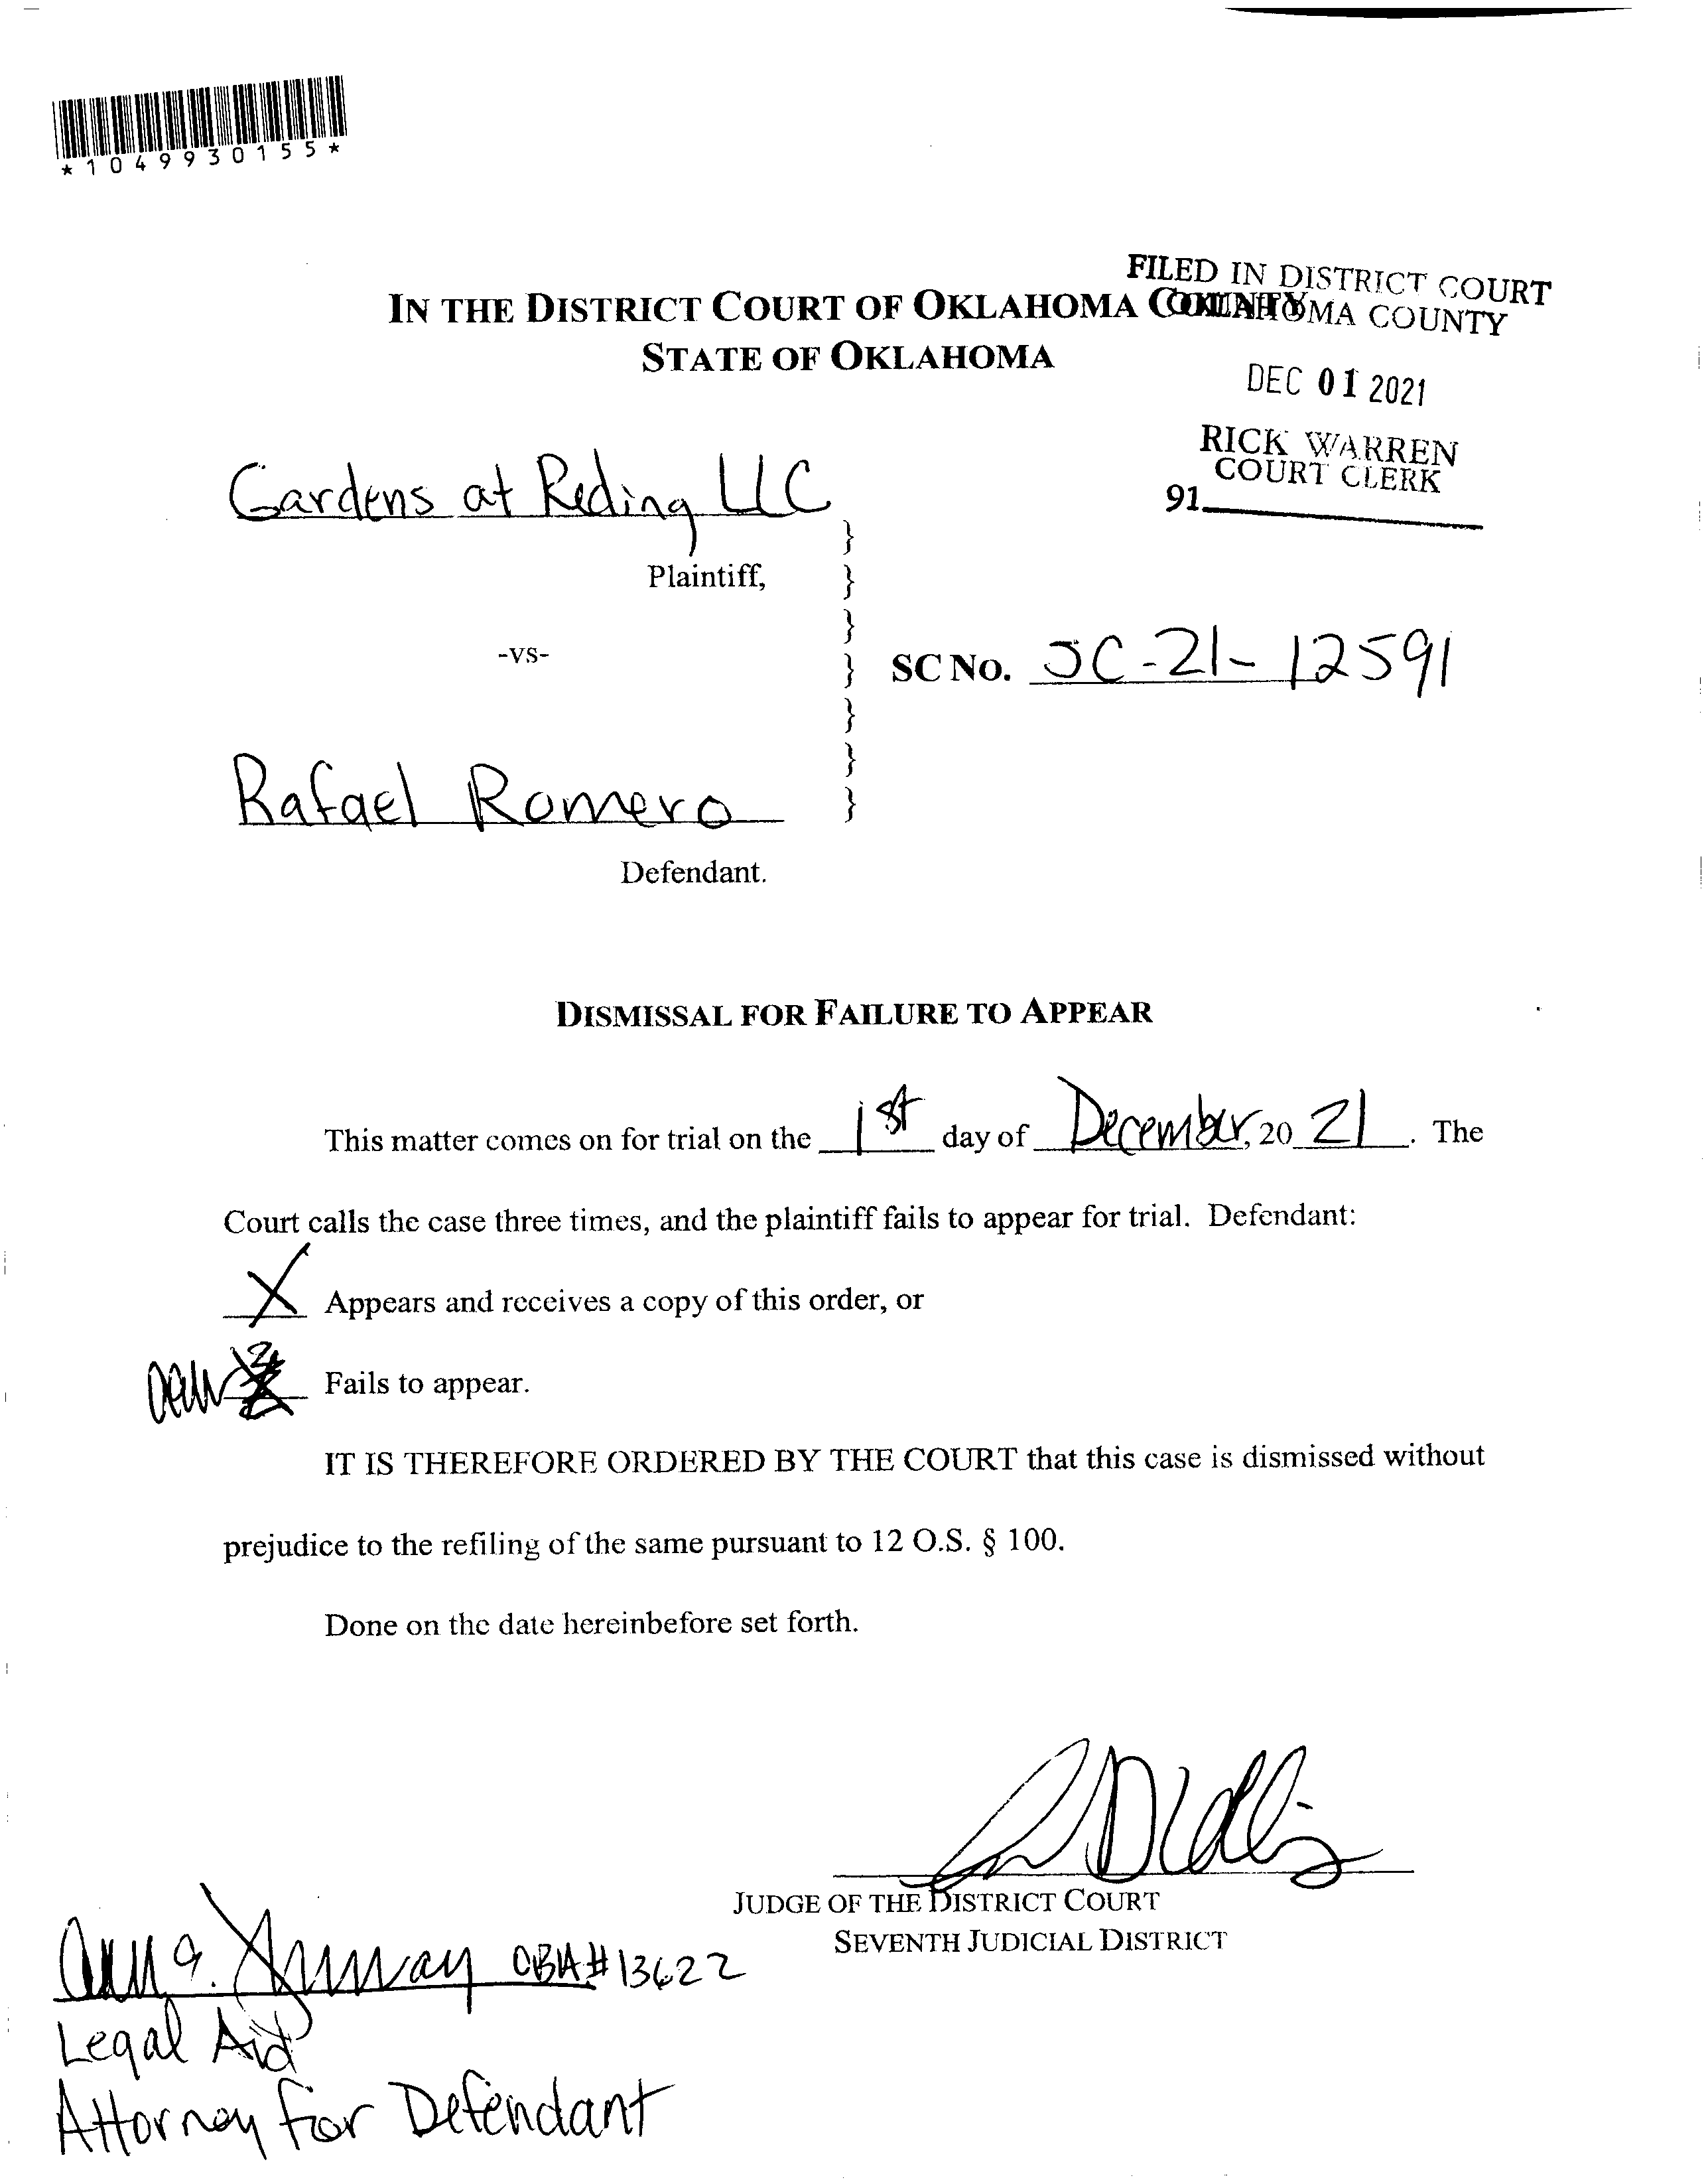 *1049930155*
FILED IN DISTRICT COURT
OKLAHOMA COUNTY
IN THE DISTRICT COURT OF OKLAHOMA COUNTY
STATE OF OKLAHOMA
DEC 01 2021
RICK WARREN
COURT CLERK
91
Gardens at Reding LLC
Plaintiff,
-vs-
SC NO. SC-21-12591
Rafael Romero
Defendant.
DISMISSAL FOR FAILURE TO APPEAR
This matter comes on for trial on the 1st day of December, 20 21. The
Court calls the case three times, and the plaintiff fails to appear for trial. Defendant:
X Appears and receives a copy of this order, or
Fails to appear.
IT IS THEREFORE ORDERED BY THE COURT that this case is dismissed without
prejudice to the refiling of the same pursuant to 12 O.S. § 100.
Done on the date hereinbefore set forth.
JUDGE OF THE DISTRICT COURT
SEVENTH JUDICIAL DISTRICT
OBA# 13622
Legal Aid
Attorney for Defendant